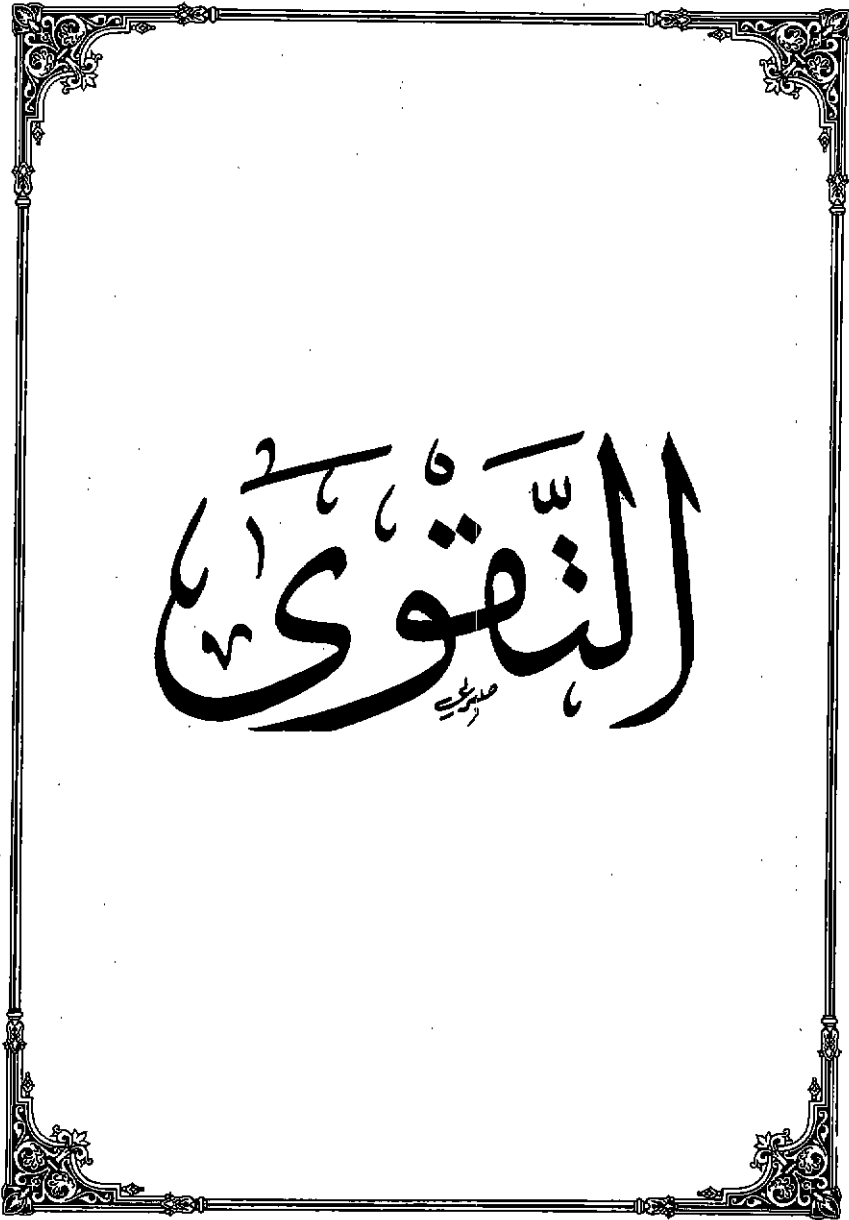 التَّقْوَى